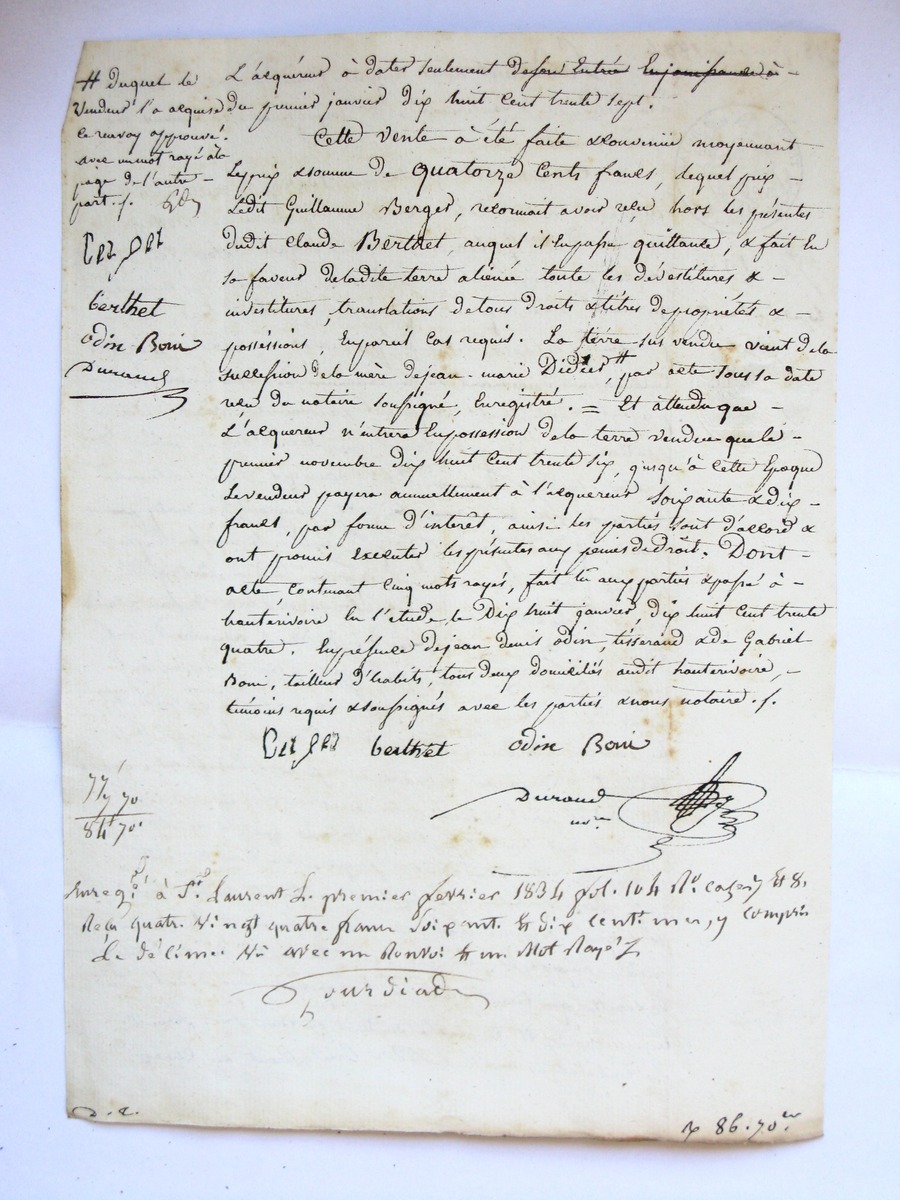 # duquel le
vendeur l'a acquise
ce renvoy approuvé.
avec un mot rayé à la
page de l'autre -
part. /.
berthet
odin Boni
Durand
L'acquéreur à dater seulement de son Entrée En jouissance à -
du premier janvier dix huit Cent trente sept.
Cette vente à été faite & convenue moyennant
Le prix & somme de quatorze Cents francs, lequel prix -
Ledit Guillaume Berger, reconnait avoir reçu hors les présentes
dudit Claude Berthet, auquel il En passe quittance, & fait En
sa faveur de ladite terre aliénée toute les dévestitures & -
investitures, translations de tous droits & titres de propriétés & -
possessions, En pareil Cas requis. La terre sus vendue vient de la
succession de la mère de jean-marie Didier #, par acte sous sa date
reçu du notaire soussigné, Enregistré. = Et attendu que -
L'acquereur n'entrera En possession de la terre vendue que le -
premier novembre dix huit Cent trente six, jusqu'à Cette Epoque
Le vendeur payera annuellement à l'acquereur soixante & dix -
francs, par forme d'interêt, ainsi les parties sont d'accord &
ont promis Executer les présentes aux peines de droit. Dont -
acte, contenant Cinq mots rayés, fait lû aux parties & passé à -
hauterivoire En l'étude, le Dix huit janvier, dix huit Cent trente
quatre. En présence de jean denis odin, tisserand & de Gabriel
Boni, tailleur d'habits, tous deux domiciliés audit hauterivoire, -
témoins requis & soussignés avec les parties & nous notaire. /.
berthet odin Boni
Durand
nre
77, 70
84 70
Enregé à St Laurent Le premier fevrier 1834 fol. 104 Ro. cases 7 Et 8.
Reçu quatre vingt quatre francs soixante Et dix centimes, y compris
Le décime. Vû avec un Renvoi # un Mot Rayé
86.70